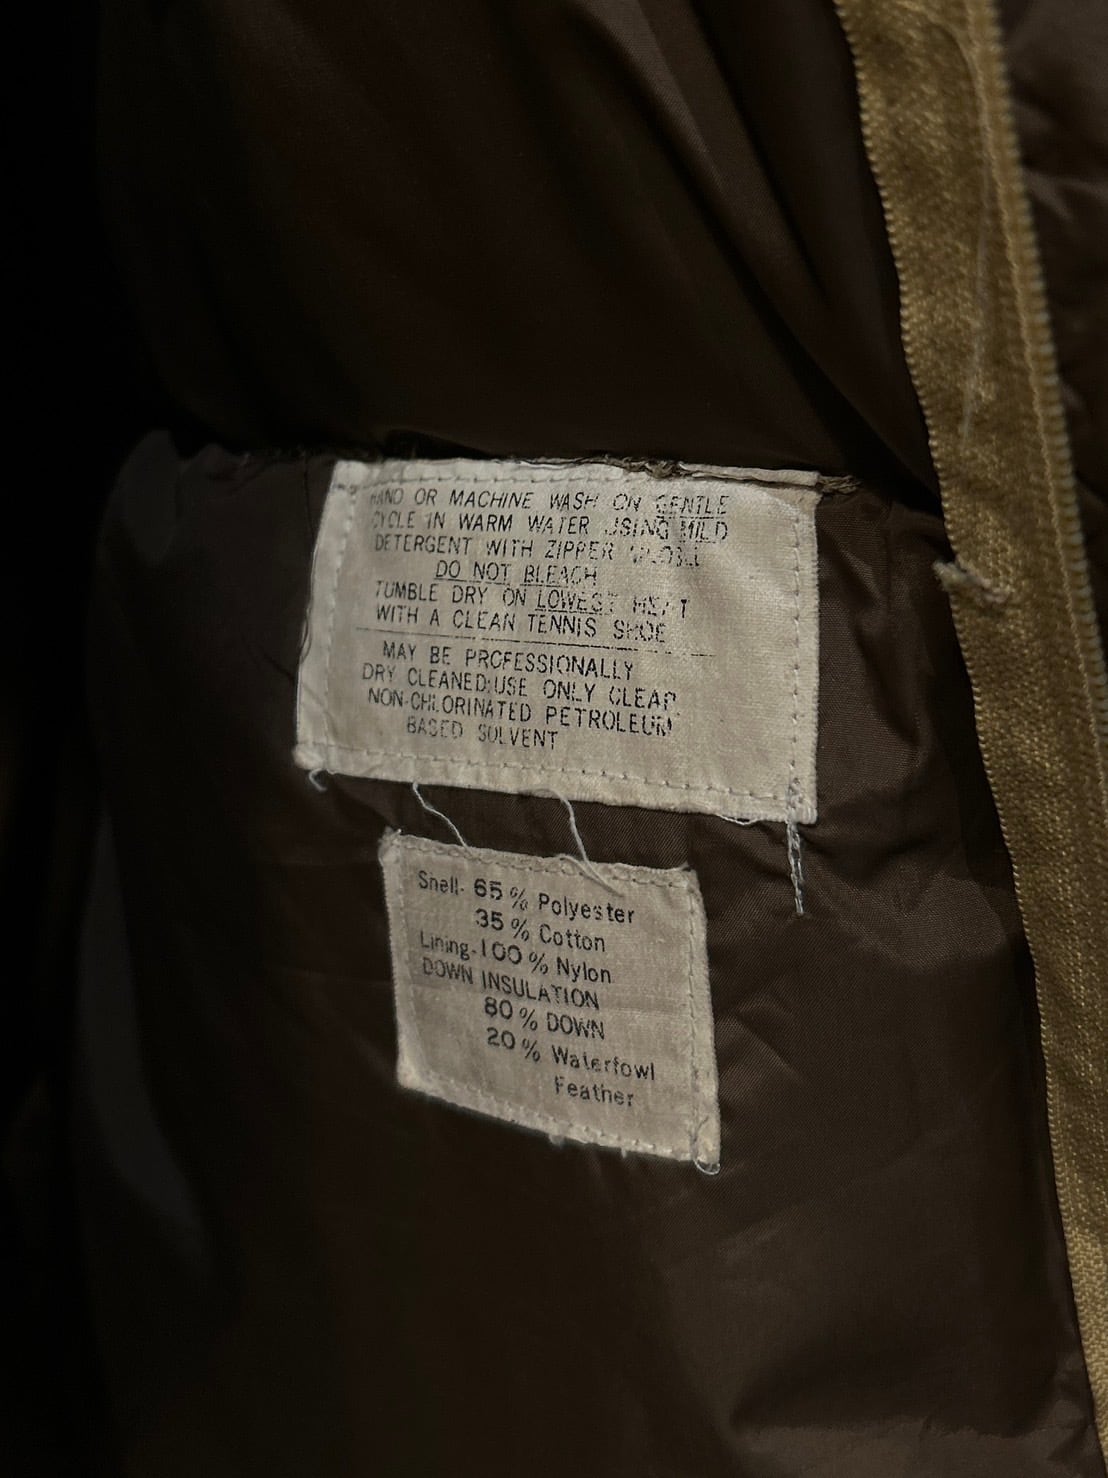 HAND OR MACHINE WASH ON GENTLE
CYCLE IN WARM WATER USING MILD
DETERGENT WITH ZIPPER
DO NOT BLEACH
TUMBLE DRY ON LOWEST HEAT
WITH A CLEAN TENNIS SHOE
MAY BE PROFESSIONALLY
DRY CLEANED:USE ONLY CLEAR
NON-CHLORINATED PETROLEUM
BASED SOLVENT
Shell- 65% Polyester
35% Cotton
Lining-100% Nylon
DOWN INSULATION
80% DOWN
20% Waterfowl
Feather